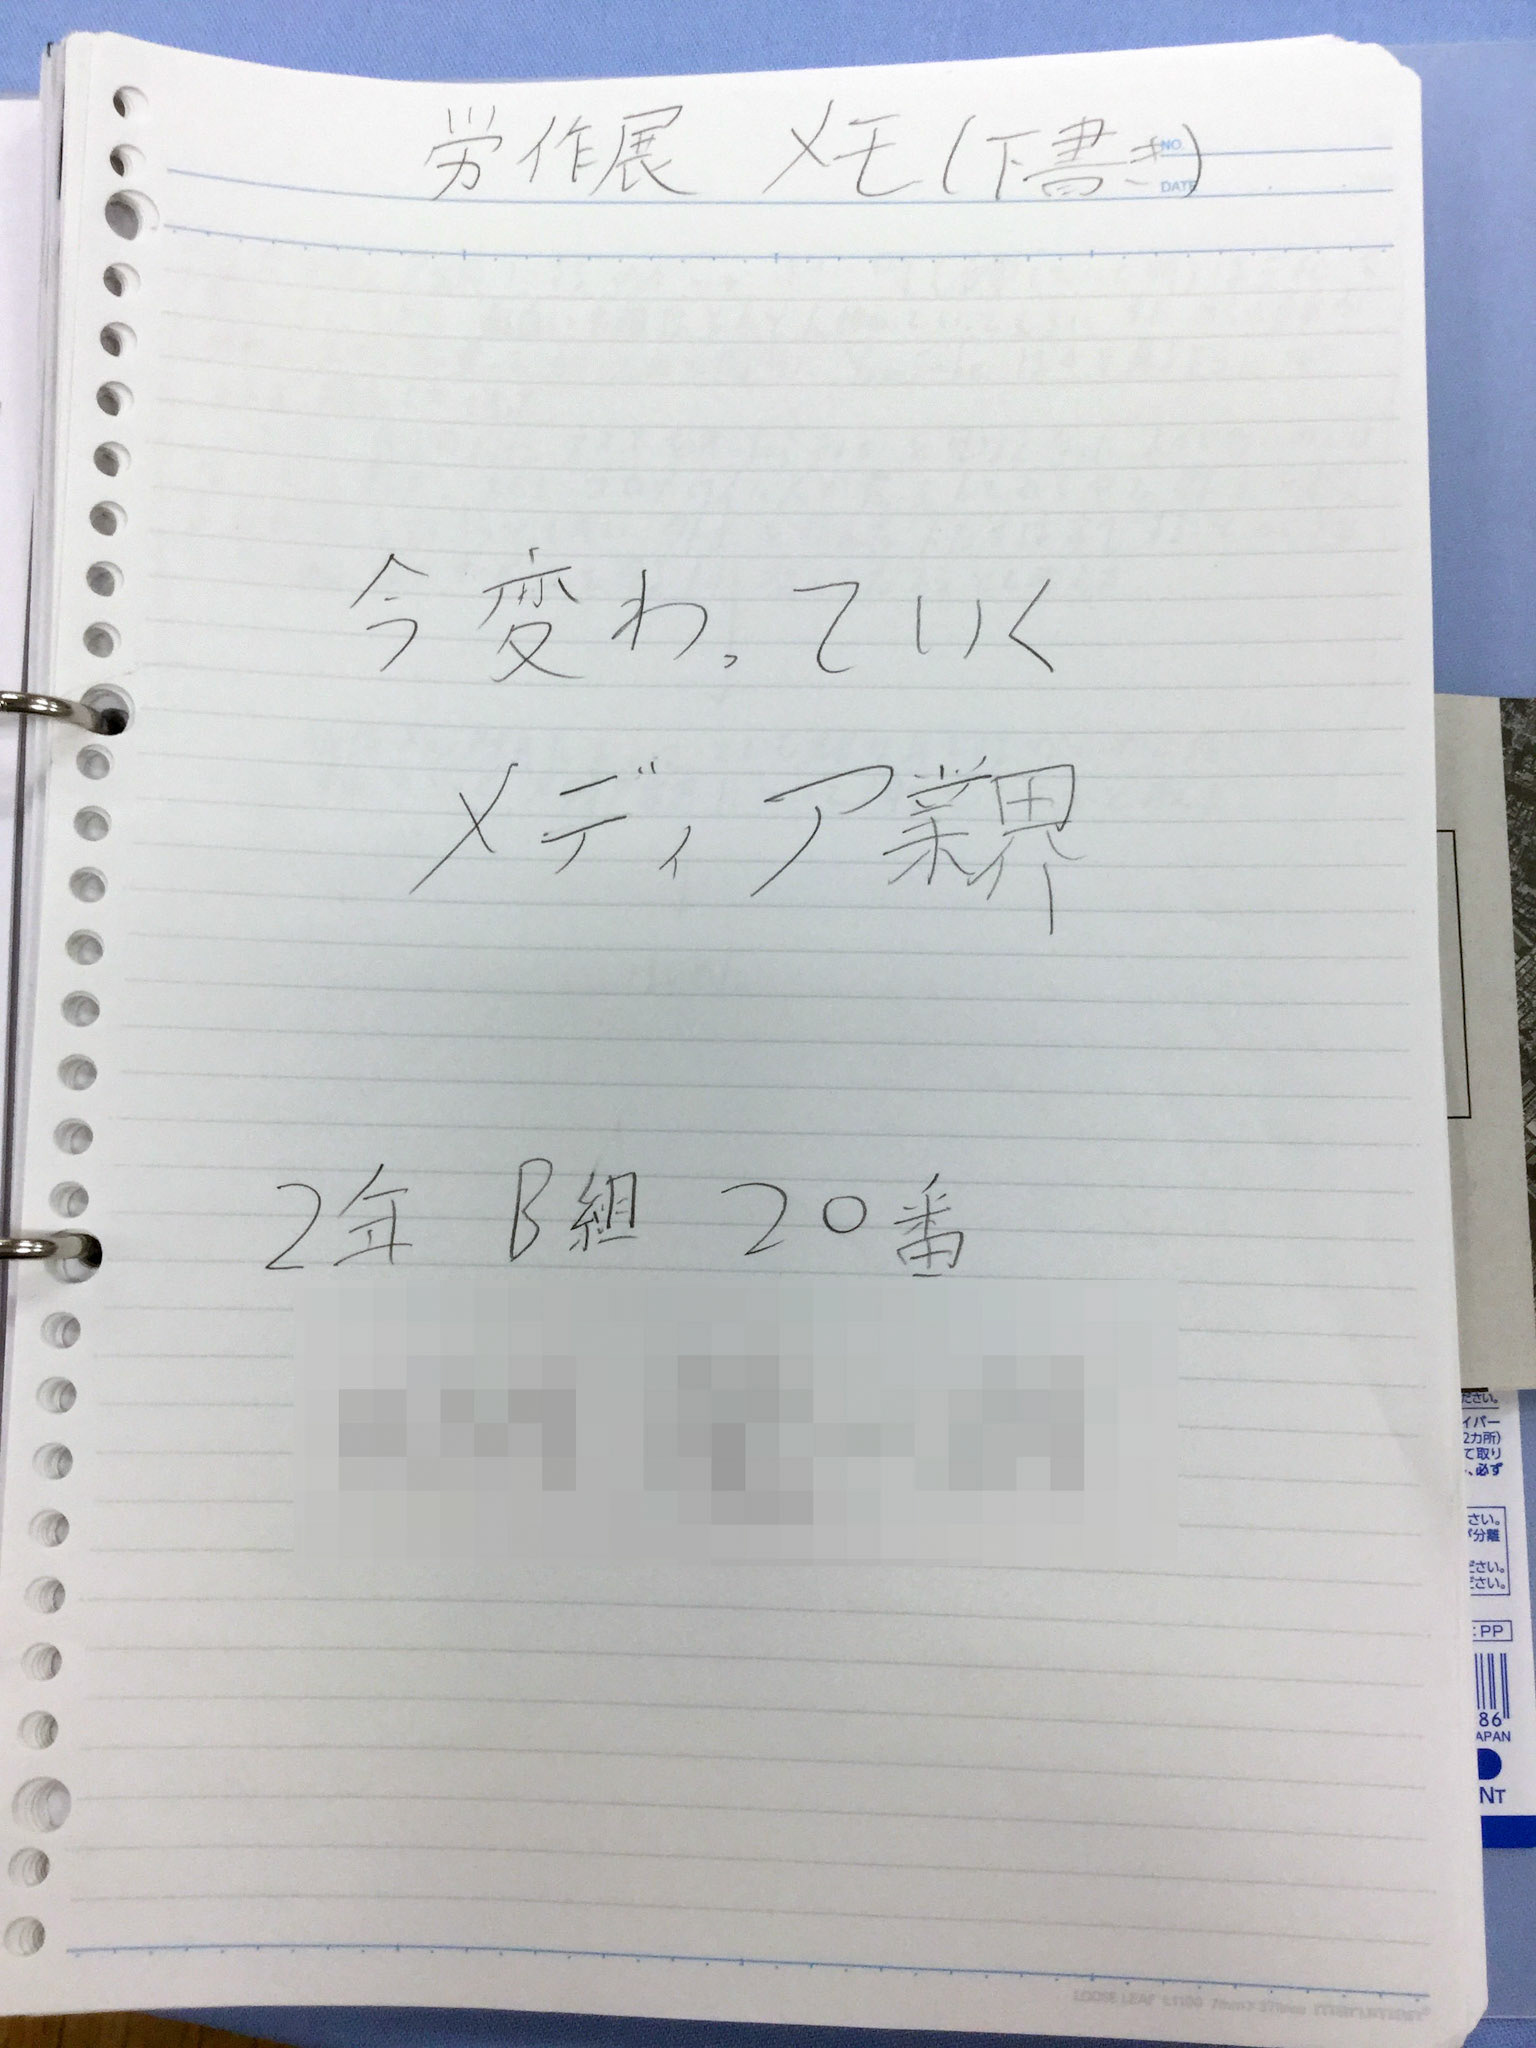 労作展 メモ(下書き)
NO.
DATE
今変わっていく
メディア業界
2年 B組 20番
ださい。
イパー
2カ所)
て取り
、必ず
さい。
が分離
ださい。
ださい。
:PP
86
APAN
NT